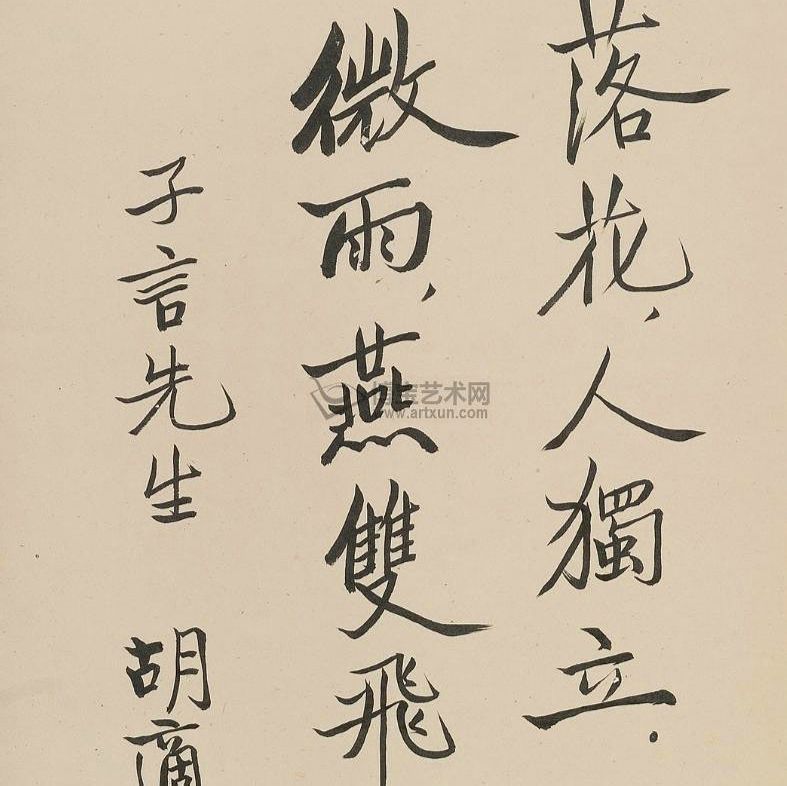 落花，人獨立．
微雨，燕雙飛
子言先生　胡適
艺术网
www.artxun.com